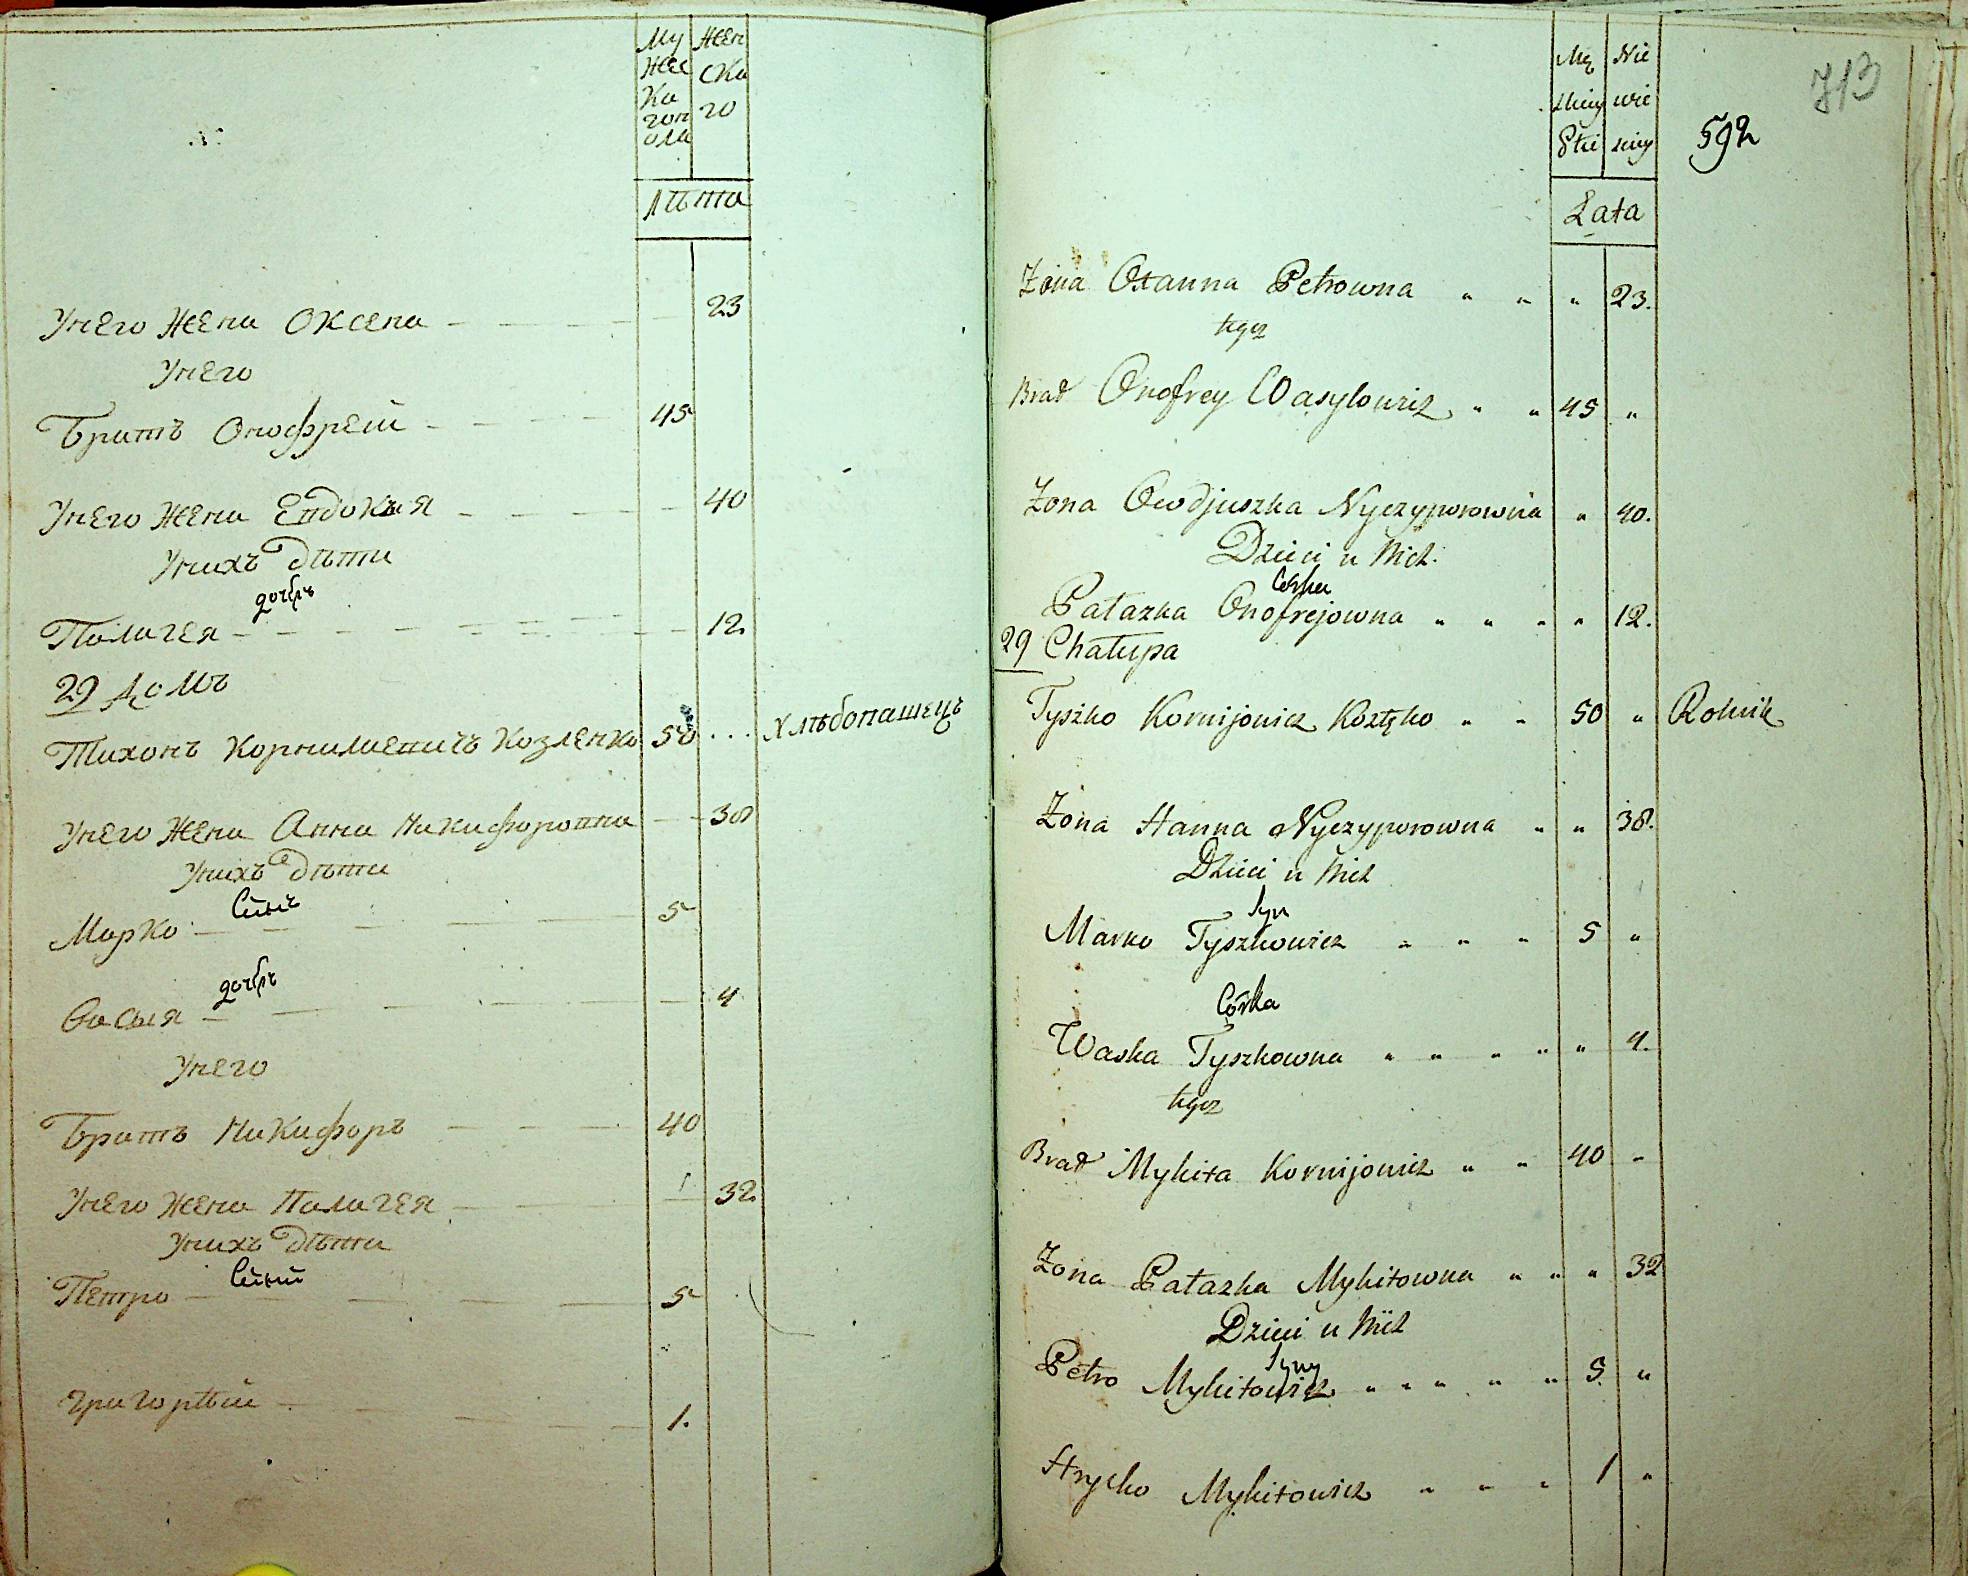 Му Жен
жес ска
ка го
гоп
ола
лѣта
Унего Жена Оксена 23
Унего
Братъ Онофрей 45
Унего Жена Евдокия 40
Унихъ Дѣти
дочерь
Палагея 12
29 Домъ
Тихонъ Корнилиевичъ Козленко 50 ... хлѣбопашецъ
Унего Жена Анна Никифоровна 38
Унихъ Дѣти
Сынъ
Марко 5
дочерь
Васья 4
Унего
Братъ Никифоръ 40
Унего Жена Палагея 32
Унихъ Дѣти
Сыны
Петро 5
Григорѣй 1.
713
592
Mę Nie
skiey wie
Płci sciey
Łata
Żona Oxanna Petrowna " " " 23.
tegoz
Brat Onofrey Wasylowicz " " 45 "
Żona Owdjuszka Nyczyporowna " 40.
Dzieci u Nich.
Corka
Pałazka Onofrejowna " " " " 12.
29 Chałupa
Tyszko Kornijowicz Kozłęko " " 50 " Rolnik
Żona Hanna Nyczyporowna " " 38.
Dzieci u Nich
Syn
Marko Tyszkowicz " " " 5 "
Córka
Waska Tyszkowna " " " " " 4.
tegoz
Brat Mykita Kornijowicz " " 40 "
Żona Pałazka Mykitowna " " " 32
Dzieci u Nich
Syny
Petro Mykitowicz " " " " " 5. "
Hrycko Mykitowicz " " " 1 "